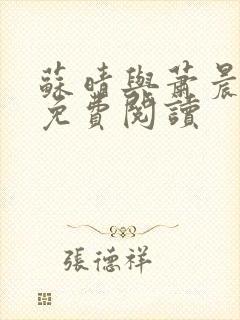 蘇晴與蕭晨
免費閱讀
張德祥